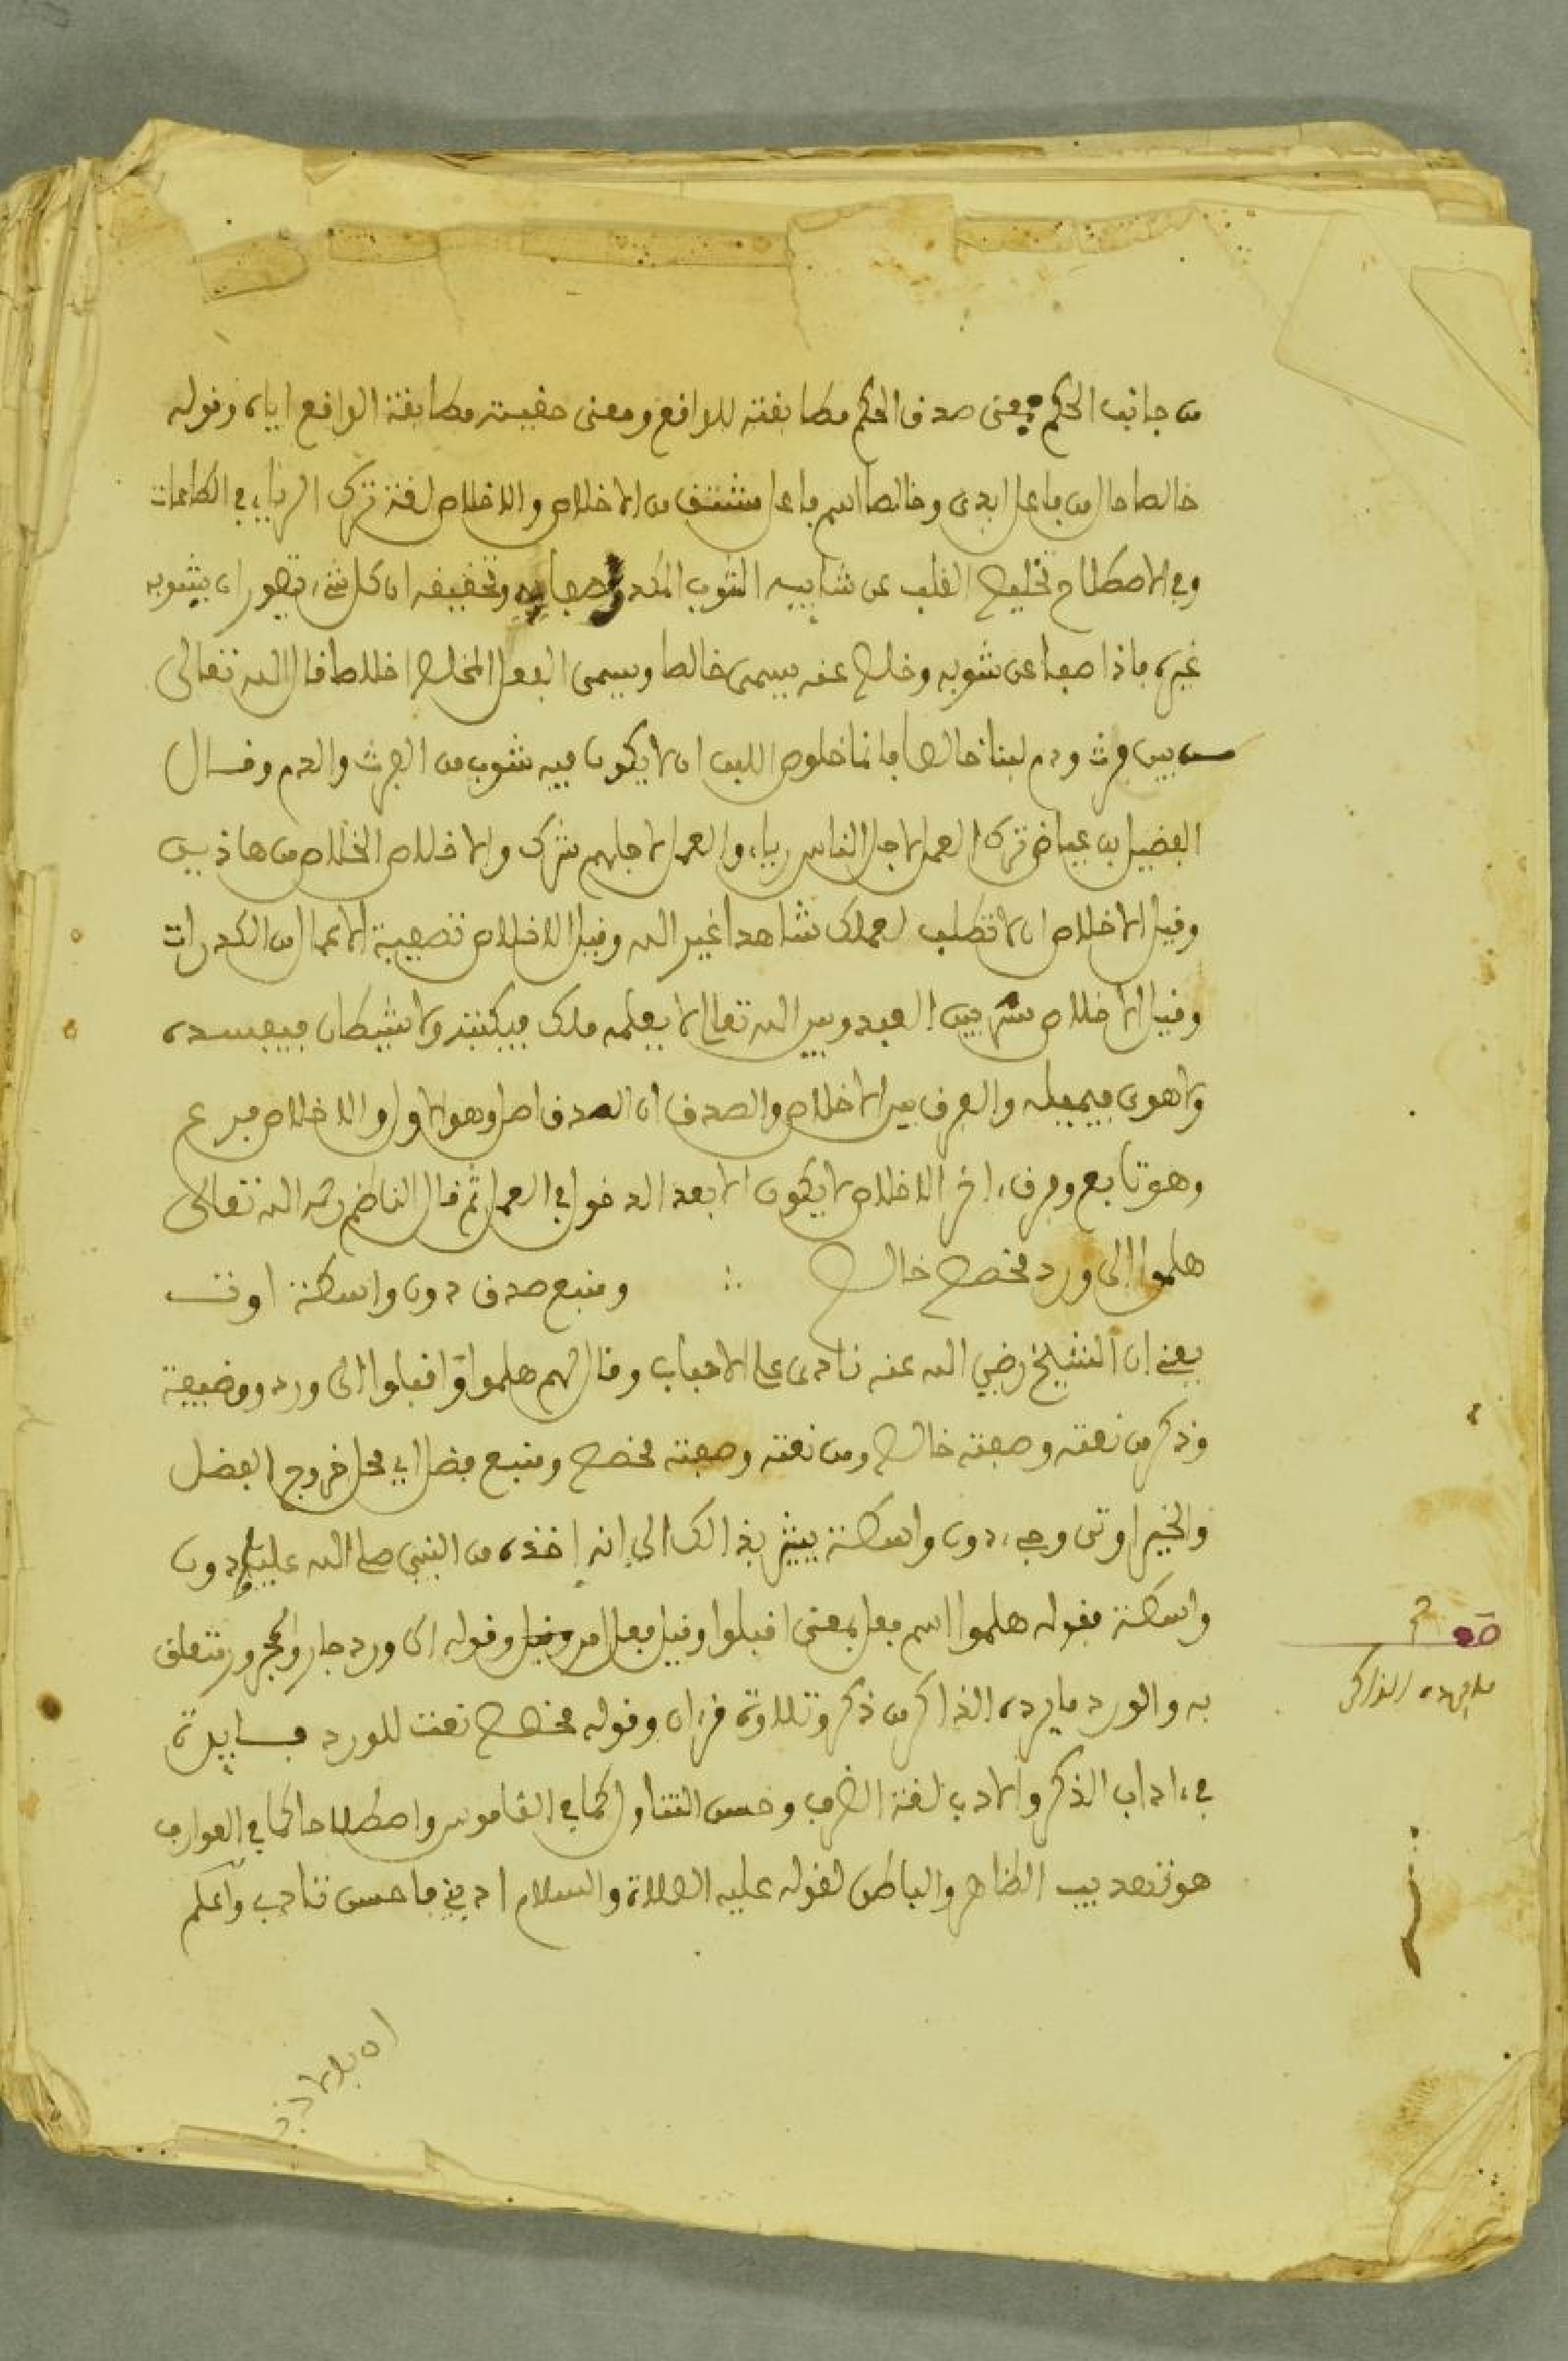 من جانب الحكم فمعنى صدق الحكم مطابقته للواقع ومعنى حقيته مطابقة الواقع اياه وقوله
خالصا حال من فاعل ابدى وخالصا اسم فاعل مشتق من الاخلاص والاخلاص لغة ترك الرياء في الطاعات
وفي الاصطلاح تخليص القلب عن شايبه الشوب المكدر لصفايه وتحقيقه ان كل شيء يتصور ان يشوبه
غيره فاذا صفا عن شوبه وخلص عنه يسمى خالصا ويسمى الفعل المخلص اخلاصا قال الله تعالى
من بين فرث ودم لبنا خالصا فانما خلوص اللبن ان لا يكون فيه شوب من الفرث والدم وقال
الفضيل بن عياض ترك العمل لاجل الناس رياء والعمل لاجلهم شرك والاخلاص الخلاص من هاذين
وقيل الاخلاص ان لا تطلب لعملك شاهدا غير الله وقيل الاخلاص تصفية الاعمال من الكدرات
وقيل الاخلاص ستر بين العبد وبين الله تعالى لا يعلمه ملك فيكتبه ولا شيطان فيفسده
ولا هوى فيميله والفرق بين الاخلاص والصدق ان الصدق اصل وهو الاول والاخلاص فرع
وهو تابع وفرق ءاخر الاخلاص لا يكون الا بعد الدخول في العمل ثم قال الناظم رحمه الله تعالى
هلموا الى ورد مخصص خالص ∴ ومنبع صدق دون واسطة اوتى
يعني ان الشيخ رضي الله عنه نادى على الاحباب وقال لهم هلموا واقبلوا الى ورد ووضيفة
وذكر من نعته وصفته خالص ومن نعته وصفته مخصص ومنبع فضل اي محل خروج الفضل
والخير اوتى وجيء دون واسطة يشير بذالك الى انه اخذه من النبي صلى الله عليه دون
واسطة فقوله هلموا اسم فعل بمعنى اقبلوا وقيل فعل امر وقوله الى ورد جار والمجرور متعلق
به والورد ما يرده الذاكر من ذكر وتلاوة قرءان وقوله مخصص نعت للورد فايدة
في ءاداب الذكر والادب لغة الضرف وحسن التناول كما في القاموس واصطلاحا كما في العوارف
هو تهديب الظاهر والباطن لقوله عليه الصلاة والسلام ادبني فاحسن تاديب واعلم
قف
ما يرده الذاكر